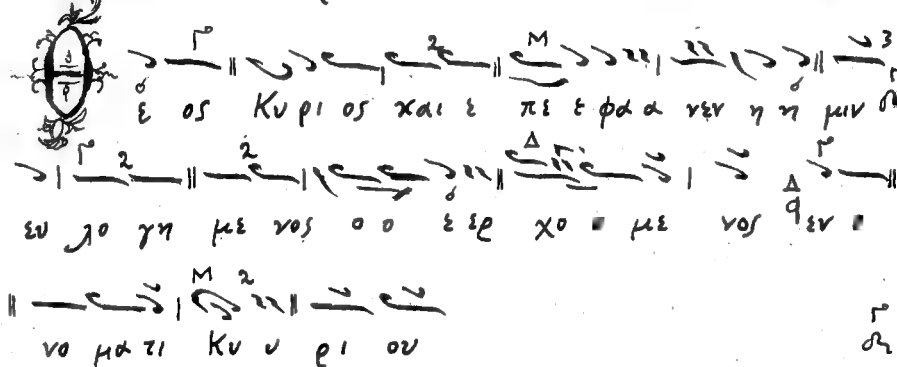 Θε ος Κυ ρι ος και ε πε ε φα α νεν η η μιν
ευ λο γη με νος ο ο ε ερ χο ο με νος εν ο
νο μα τι Κυ υ ρι ου